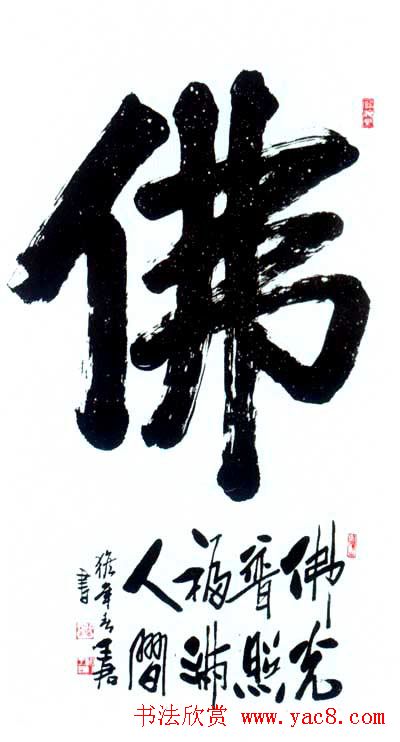 佛
佛光
普照
福滿
人間
書
书法欣赏 www.yac8.com